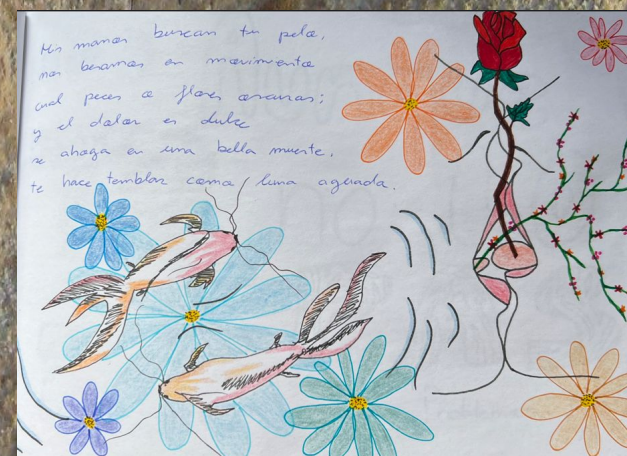 Mis manos buscan tu pelo,
nos besamos en movimiento
cual peces o flores oscuras;
y el dolor es dulce
se ahoga en una bella muerte,
te hace temblar como luna aguada.